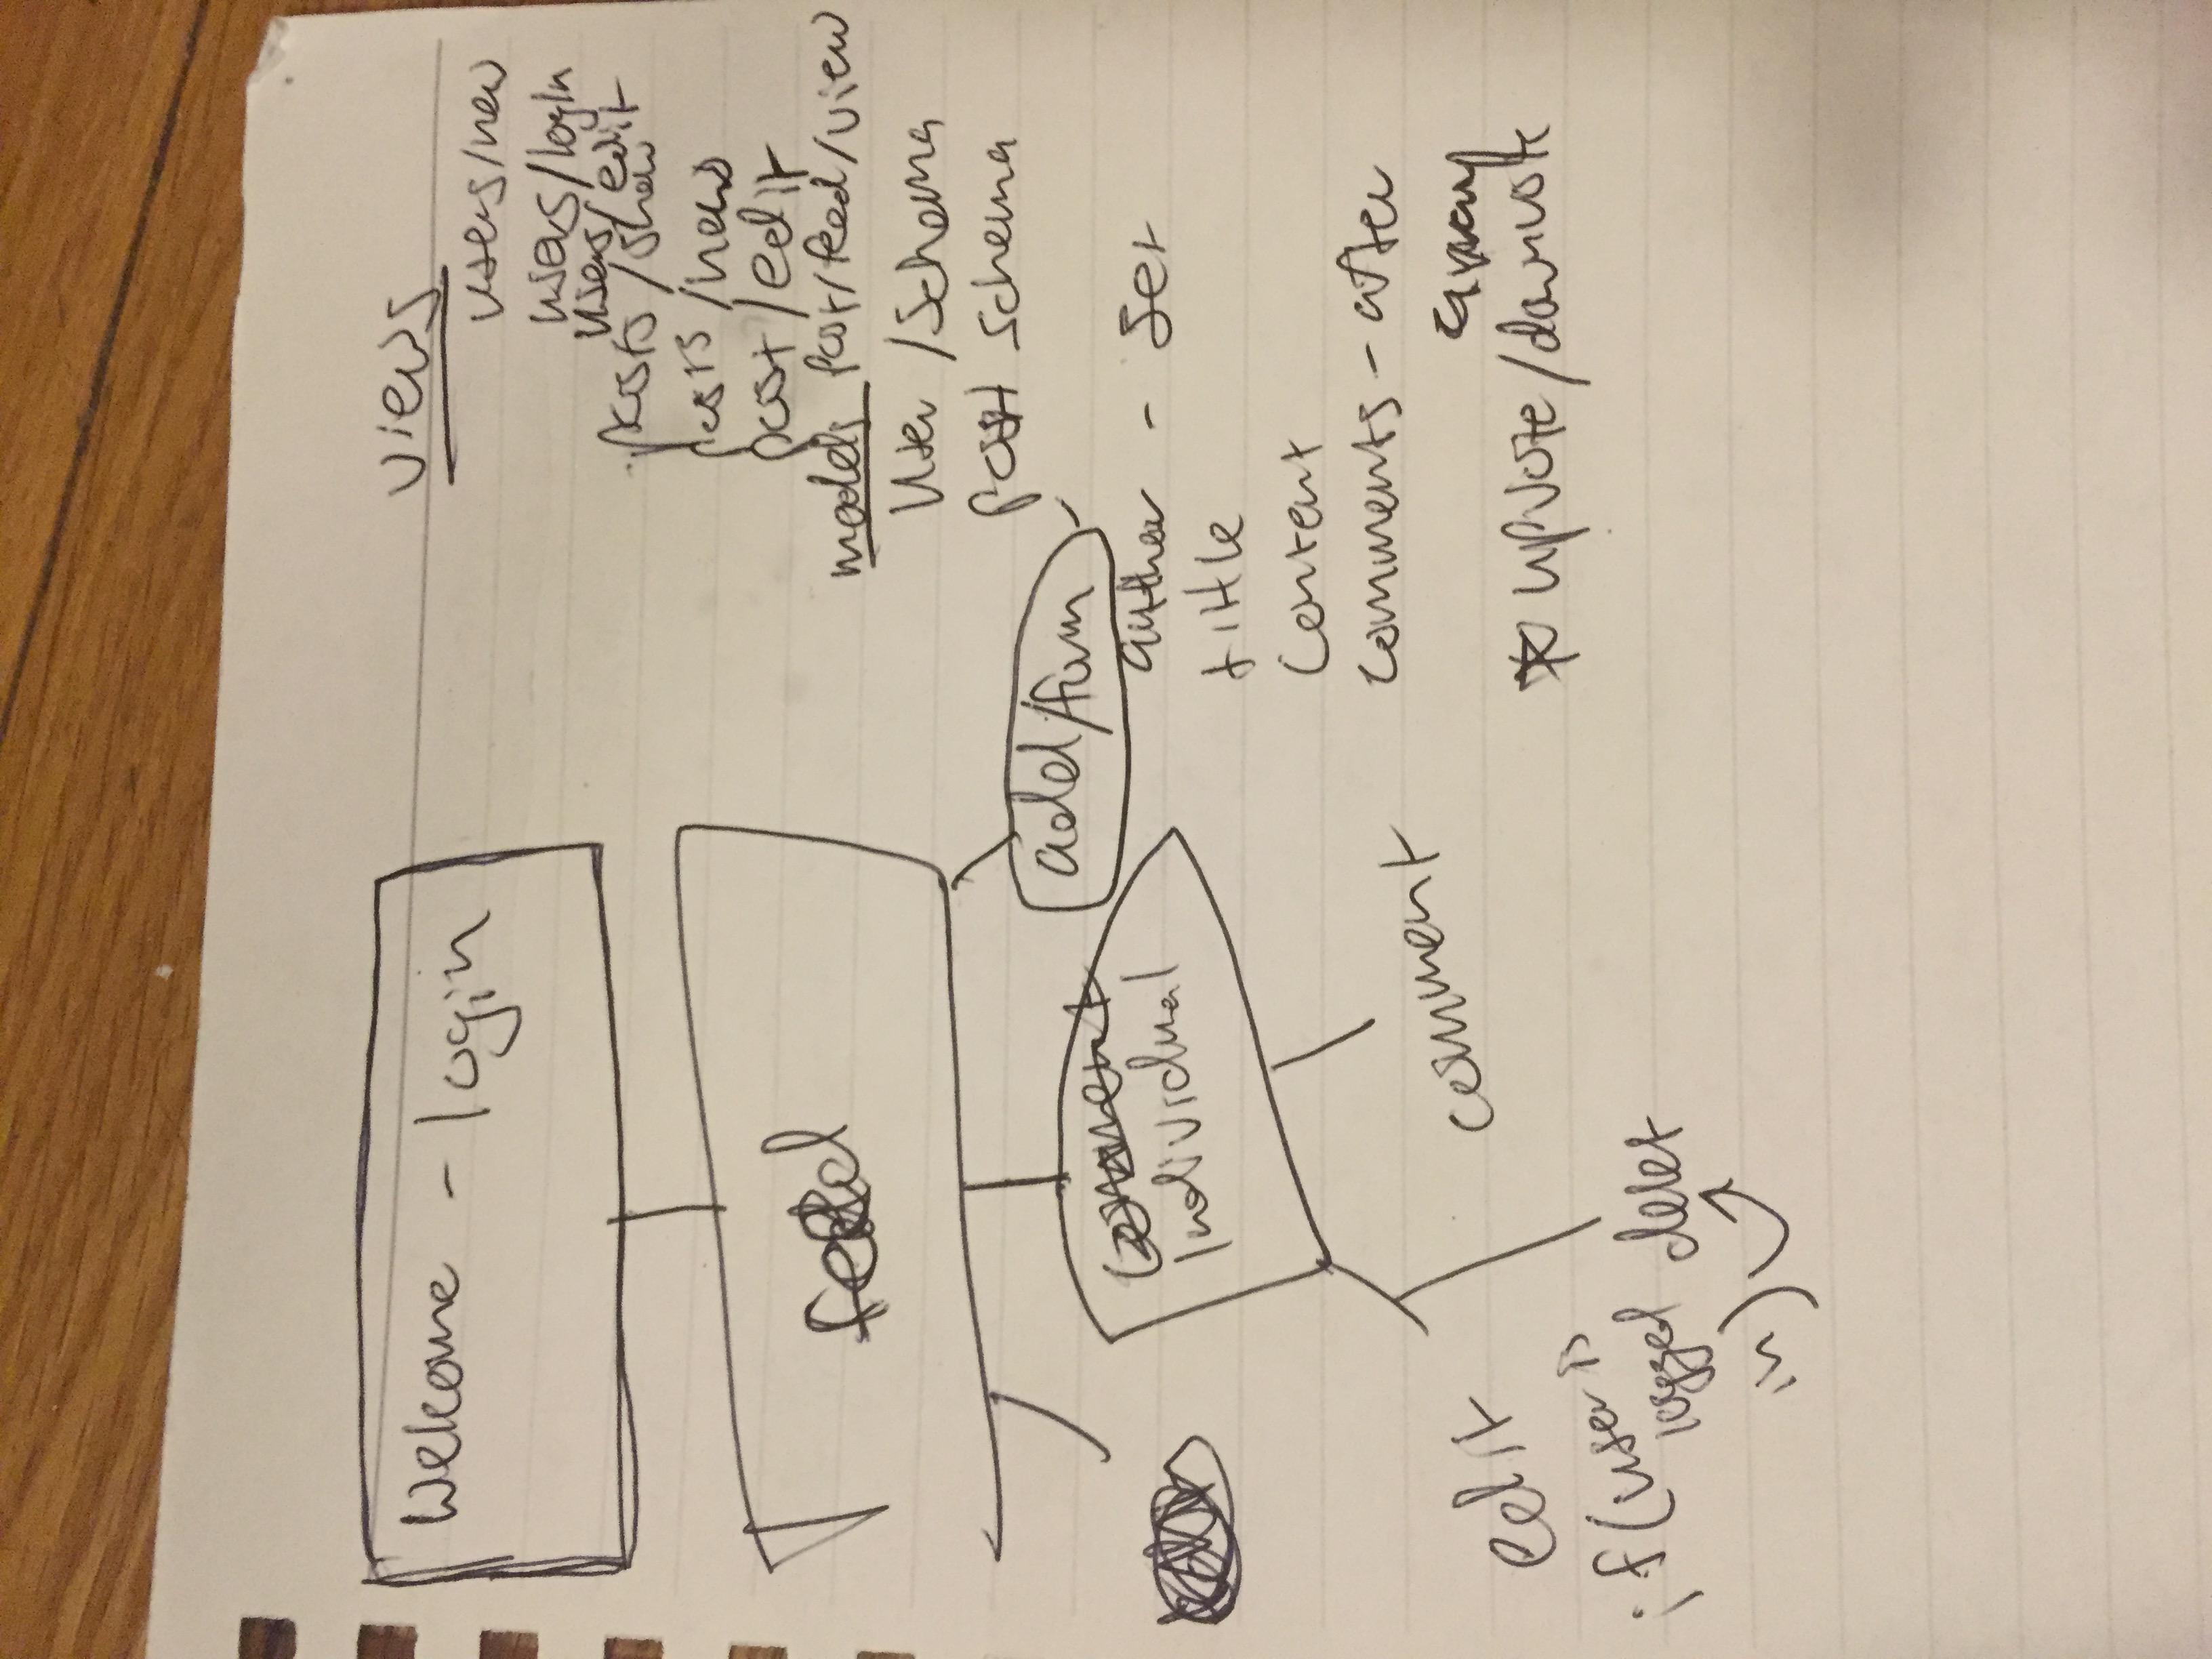 Welcome - login
feed
add/form
Individual
comment
edit
delet
if (user is
logged
in)
views
users/new
users/login
users/edit
posts/show
posts/new
post/edit
post/feed/view
models
User/Schema
post schema
author - set
title
content
comments - after
* upvote/downvote